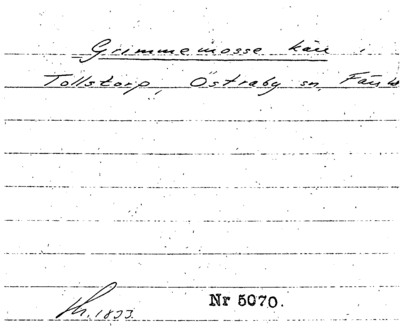 Grimmemosse kärr i
Tollstorp, Östraby sn, Färs h
1833
Nr 5070.